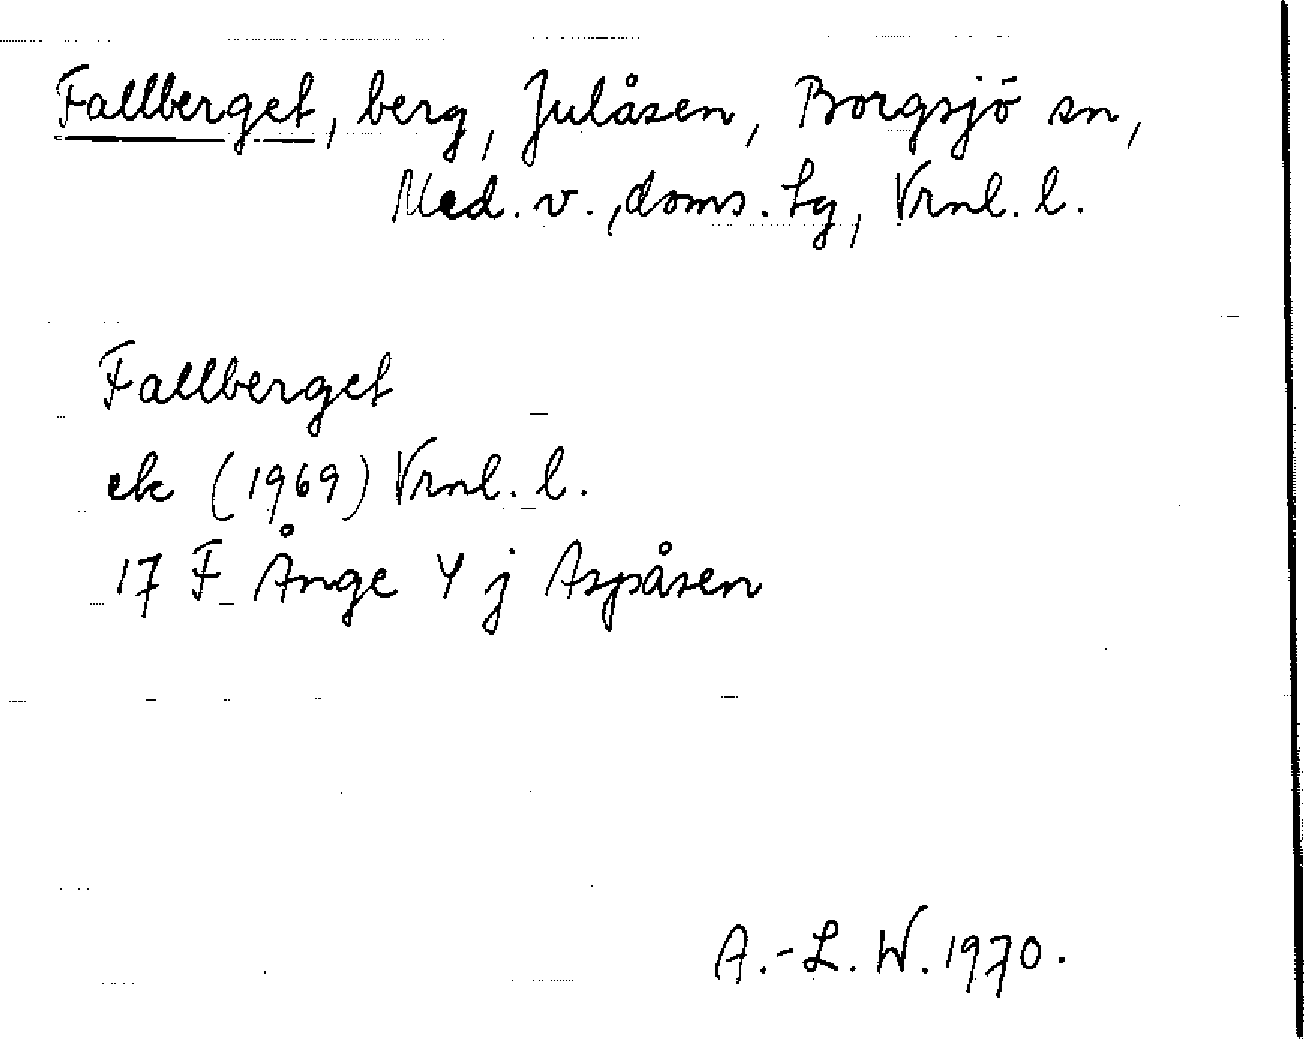 Fallberget, berg, Julåsen, Borgsjö sn,
Med. v., doms. tg, Vrnl. l.
Fallberget
ek (1969) Vrnl. l.
17 F Ånge Y j Aspåsen
A.-L. W. 1970.